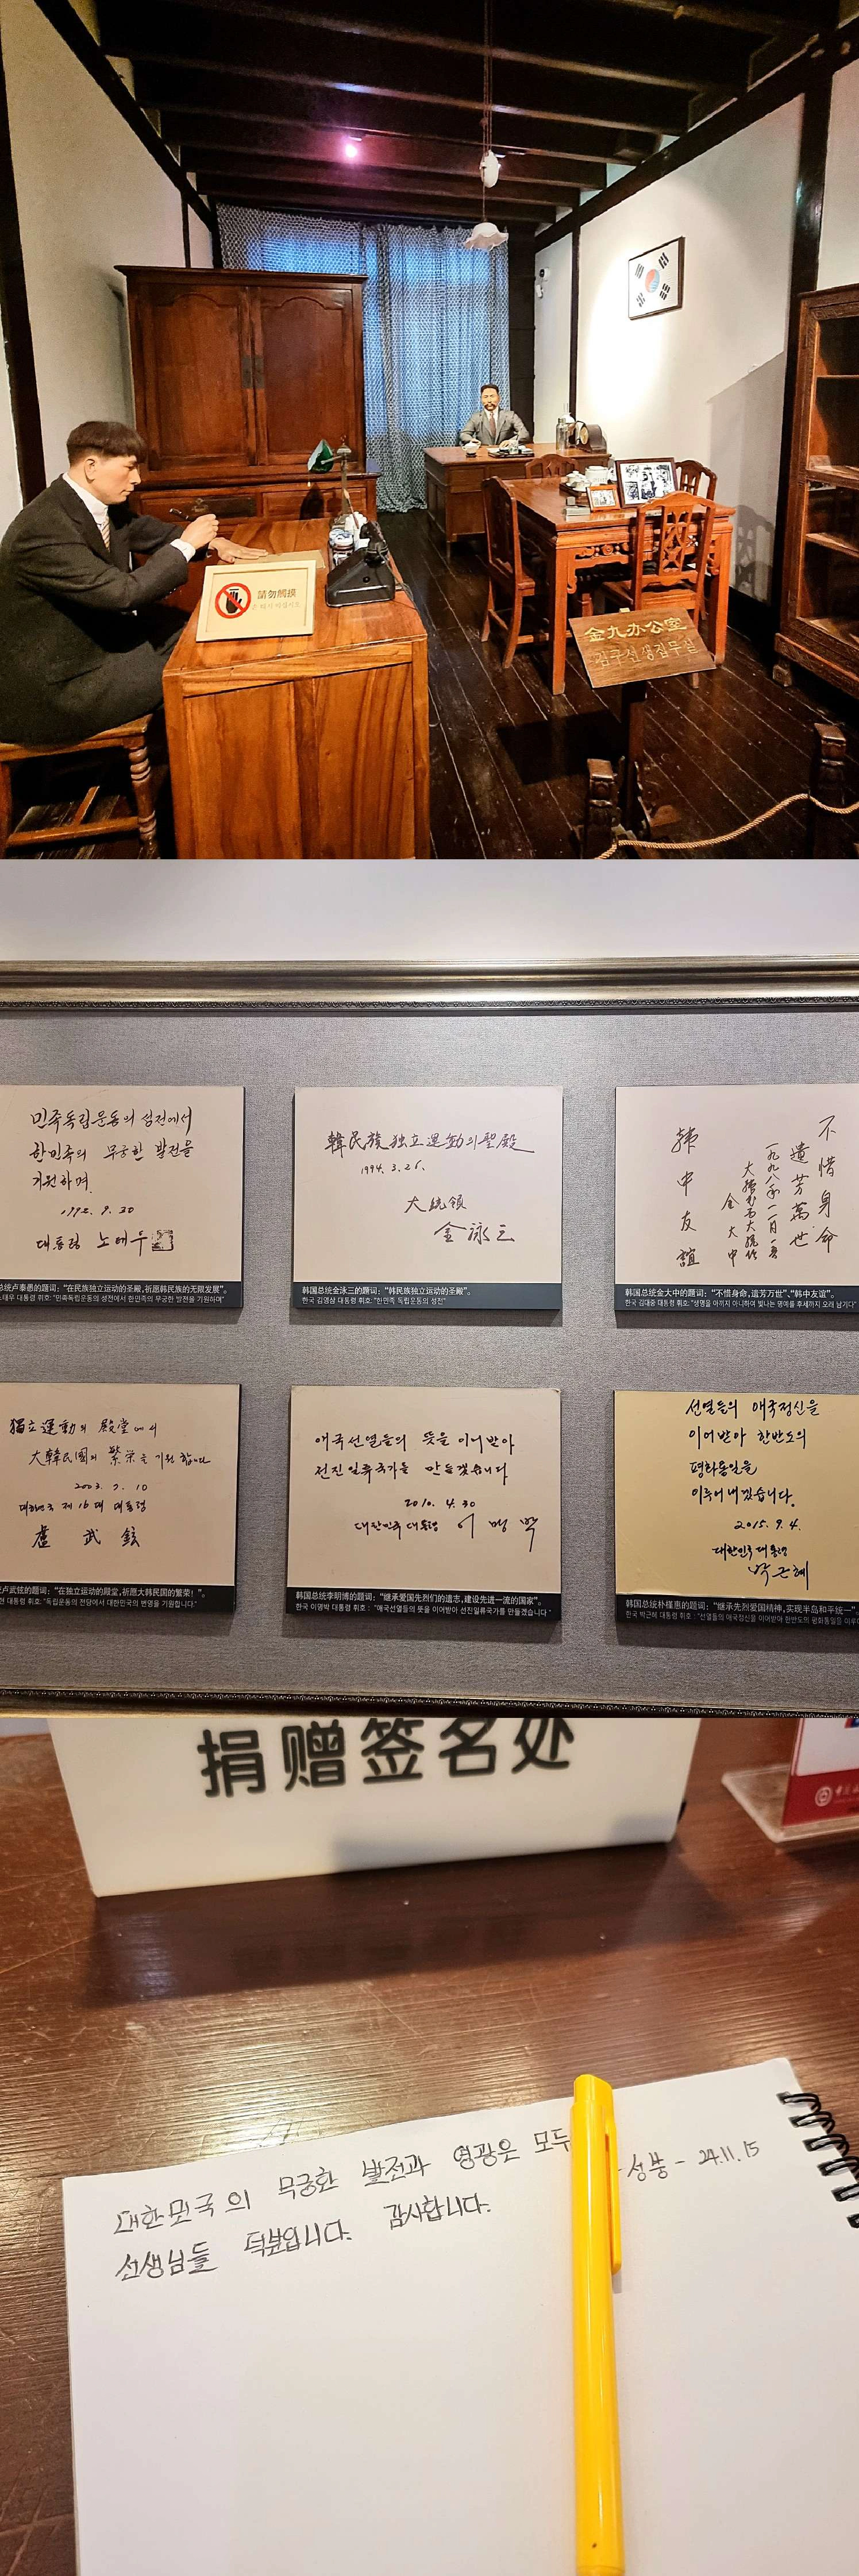 請勿觸摸
金九办公室
김구선생집무실
민족독립운동의 성전에서
한민족의 무궁한 발전을
기원하며.
1992. 9. 30
대통령 노태우
总统卢泰愚的题词：“在民族独立运动的圣殿,祈愿韩民族的无限发展”。
노태우 대통령 휘호: "민족독립운동의 성전에서 한민족의 무궁한 발전을 기원하며"
韓民族独立運動의聖殿
1994. 3. 26.
大統領
金泳三
韩国总统金泳三的题词：“韩民族独立运动的圣殿”。
한국 김영삼 대통령 휘호: "한민족 독립운동의 성전"
不惜身命
遺芳萬世
金大中
韩中友誼
韩国总统金大中的题词：“不惜身命,遗芳万世”、“韩中友谊”。
한국 김대중 대통령 휘호: "생명을 아끼지 아니하여 빛나는 명예를 후세까지 오래 남기다"
獨立運動의 殿堂에서
大韓民國의 繁栄을 기원합니다
2003. 7. 10
대한민국 제16대 대통령
盧武鉉
卢武铉的题词：“在独立运动的殿堂,祈愿大韩民国的繁荣！”。
현 대통령 휘호: "독립운동의 전당에서 대한민국의 번영을 기원합니다."
애국선열들의 뜻을 이어받아
선진일류국가를 만들겠습니다
2010. 4. 30
대한민국 대통령 이명박
韩国总统李明博的题词：“继承爱国先烈们的遗志,建设先进一流的国家”。
한국 이명박 대통령 휘호 : "애국선열들의 뜻을 이어받아 선진일류국가를 만들겠습니다"
선열들의 애국정신을
이어받아 한반도의
평화통일을
이루어내겠습니다.
2015. 9. 4.
대한민국 대통령
박근혜
韩国总统朴槿惠的题词：“继承先烈爱国精神,实现半岛和平统一”。
한국 박근혜 대통령 휘호 : "선열들의 애국정신을 이어받아 한반도의 평화통일을 이루어
捐赠签名处
대한민국의 무궁한 발전과 영광은 모두
선생님들 덕분입니다. 감사합니다.
-성붕- 24.11.15